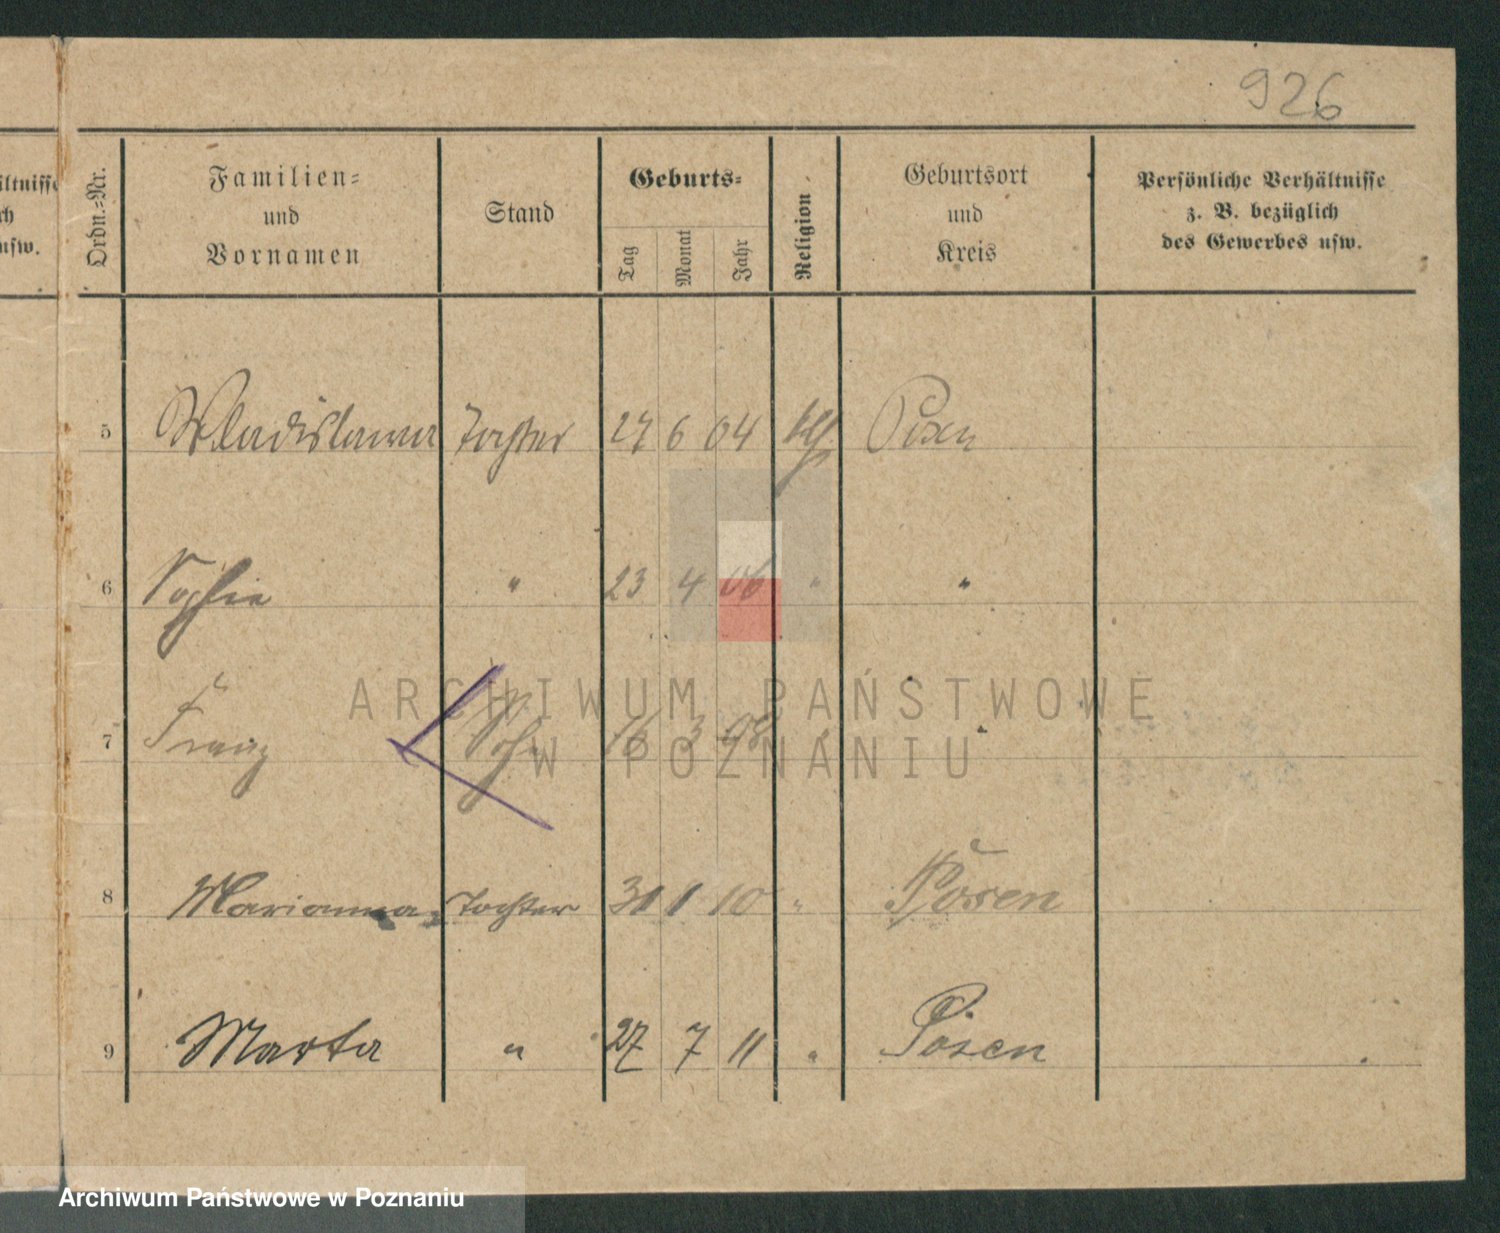 926
ältnisse
ch
usw.
Ordn.-Nr.
Familien-
und
Vornamen
Stand
Geburts-
Tag
Monat
Jahr
Religion
Geburtsort
und
Kreis
Persönliche Verhältnisse
z. B. bezüglich
des Gewerbes usw.
5 Wladislawa Tochter 27 6 04 Posen
6 Sophie " 23 4 06 " "
7 Franz Sohn 16 3 08 " "
8 Marianna Tochter 31 1 10 " Posen
9 Marta " 27 7 11 " Posen
ARCHIWUM PAŃSTWOWE
W POZNANIU
Archiwum Państwowe w Poznaniu